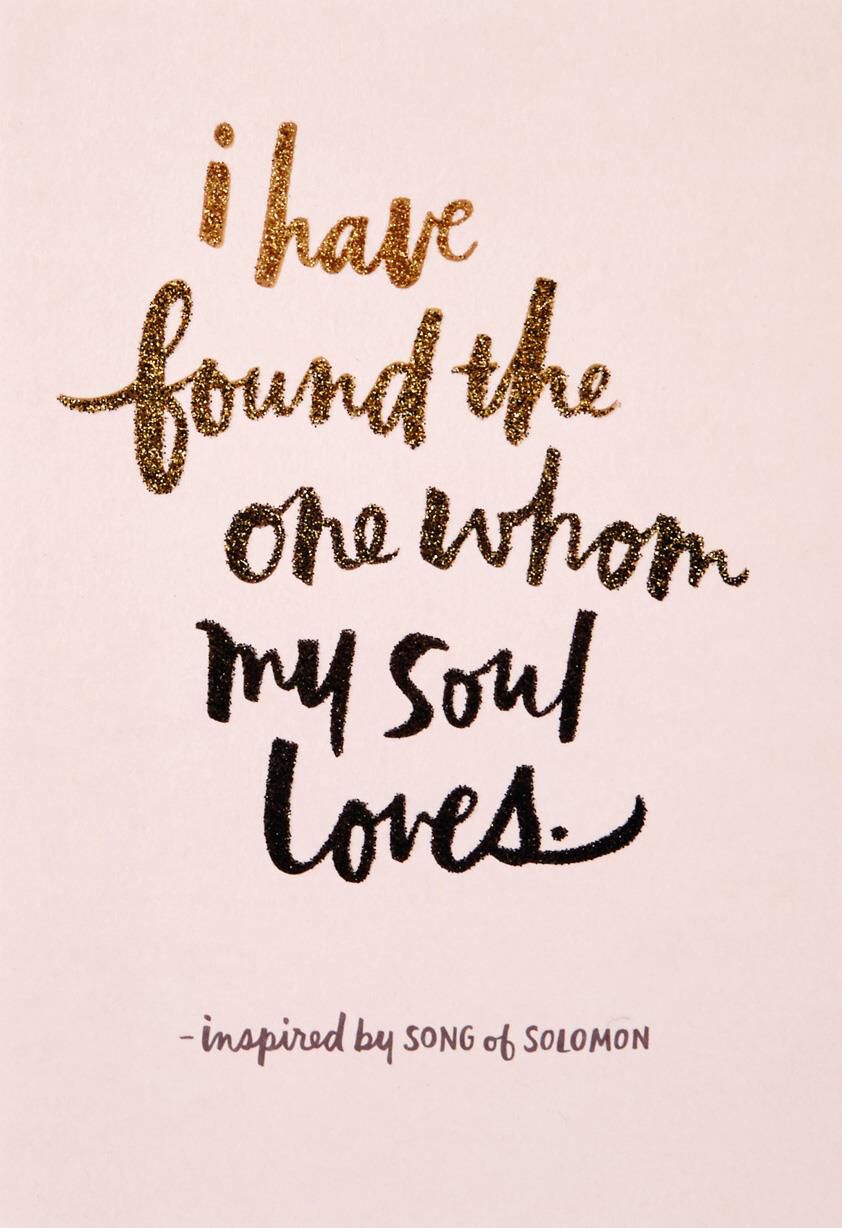 i have
found the
one whom
my soul
loves.
-inspired by SONG of SOLOMON